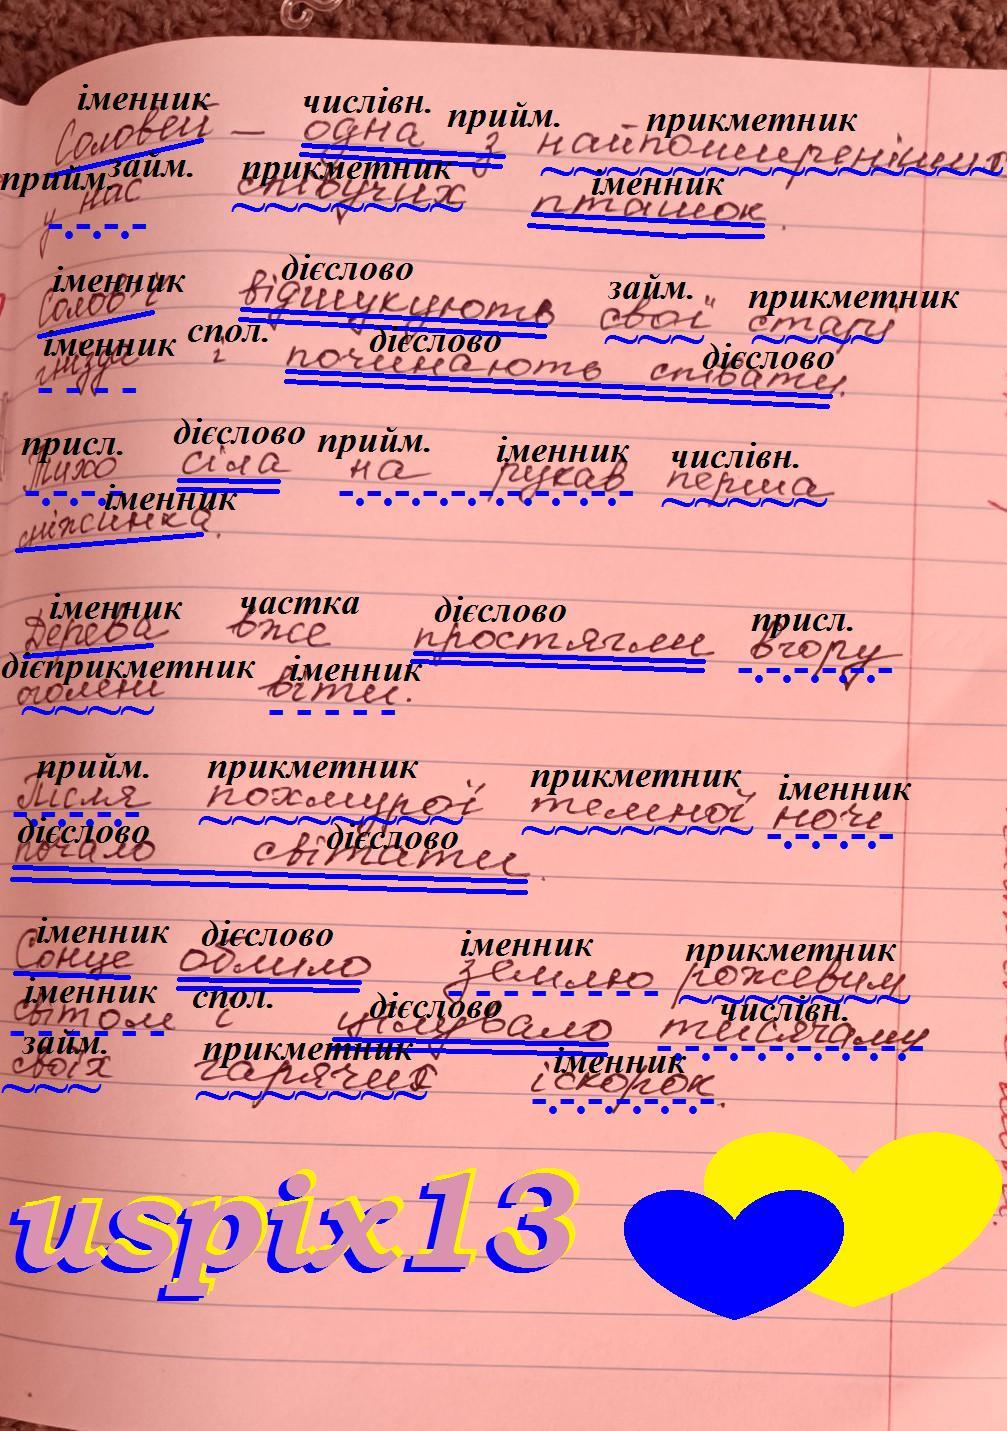 іменник числівн. прийм. прикметник
Соловей — одна з найпоширеніших
прийм. займ. прикметник іменник
у нас співучих пташок.
іменник дієслово займ. прикметник
Солов'ї відшукують свої старі
іменник спол. дієслово дієслово
гнізда і починають співати.
присл. дієслово прийм. іменник числівн.
Тихо сіла на рукав перша
іменник
сніжинка.
іменник частка дієслово присл.
Дерева вже простягли вгору
дієприкметник іменник
оголені віти.
прийм. прикметник прикметник іменник
Після похмурої темної ночі
дієслово дієслово
почало світати.
іменник дієслово іменник прикметник
Сонце облило землю рожевим
іменник спол. дієслово числівн.
світом і цілувало тисячами
займ. прикметник іменник
своїх гарячих іскорок.
uspix13